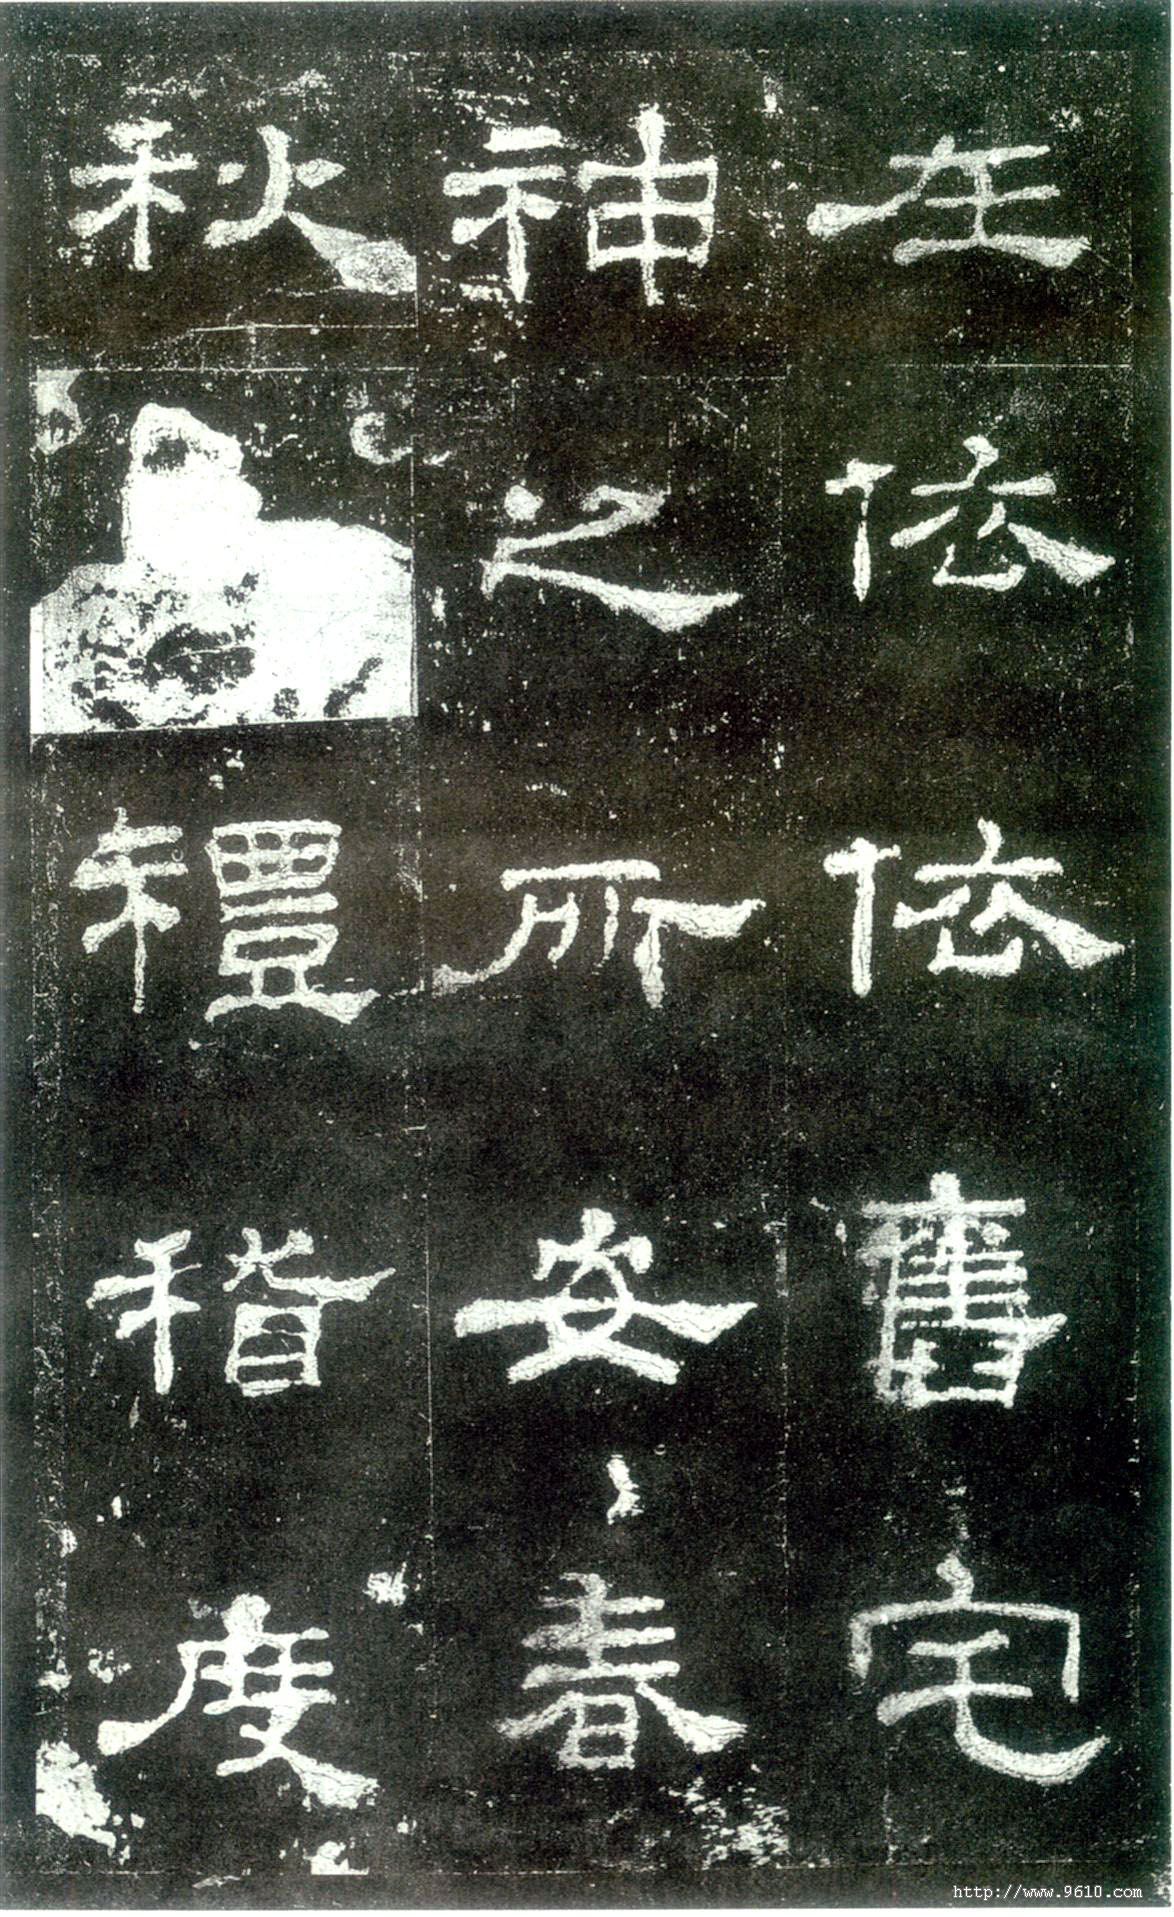 在依依舊宅
神之所安春
秋禮稽度
http://www.9610.com